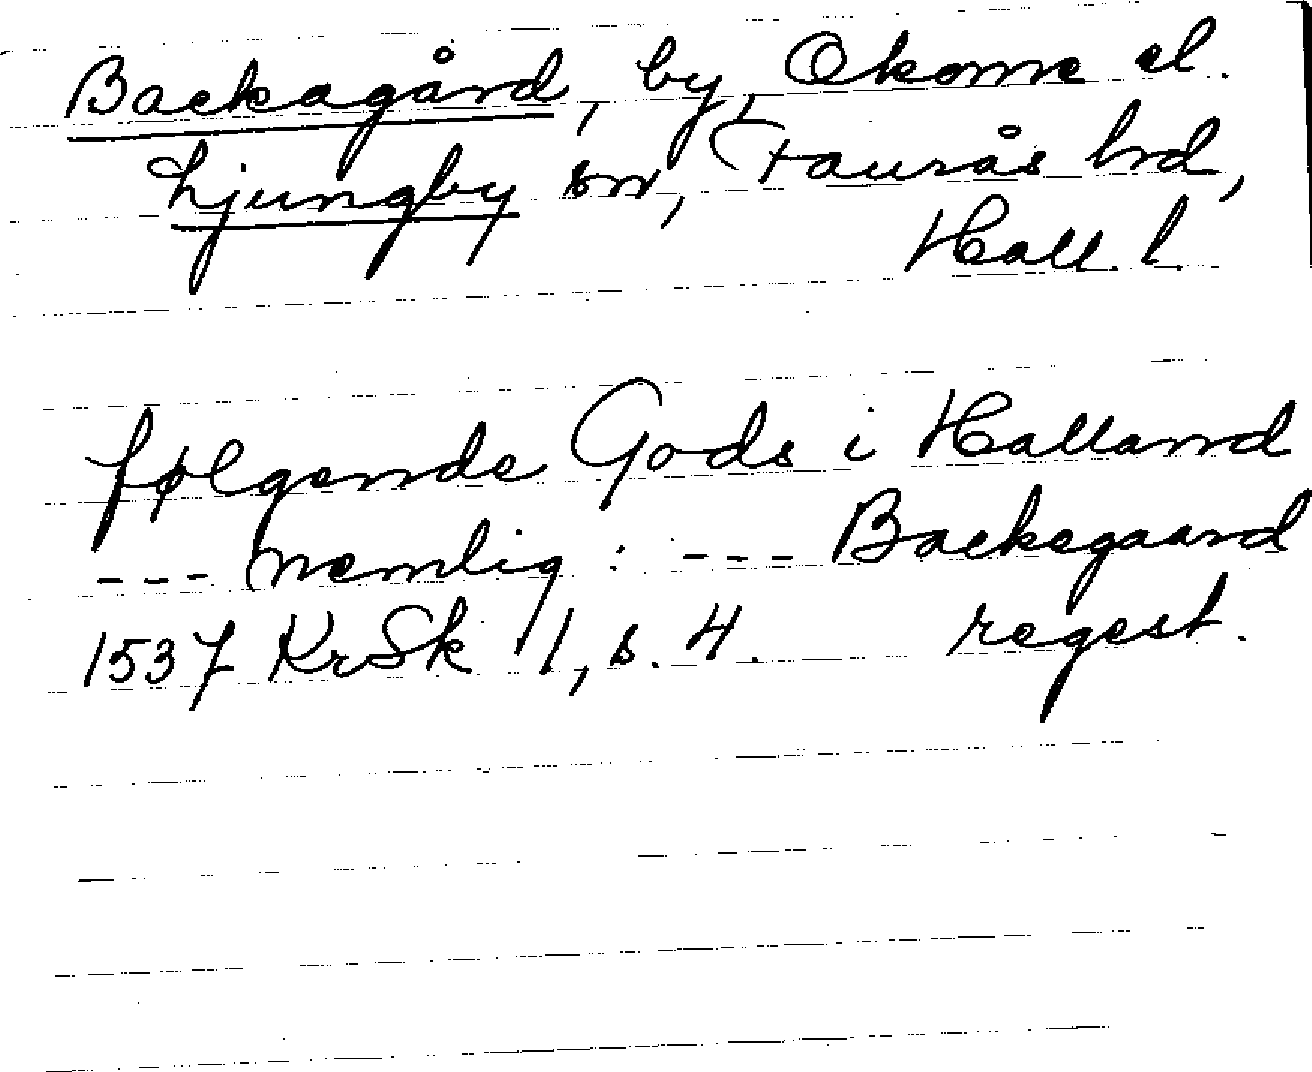 Backagård, by, Okome el.
Ljungby sn, Faurås hd,
Hall. l.
følgende Gods i Halland
--- nemlig: --- Backegaard
1537 KrSk 1, s. 4. regest.